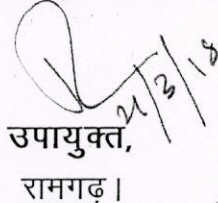 21/3/18
उपायुक्त,
रामगढ़।